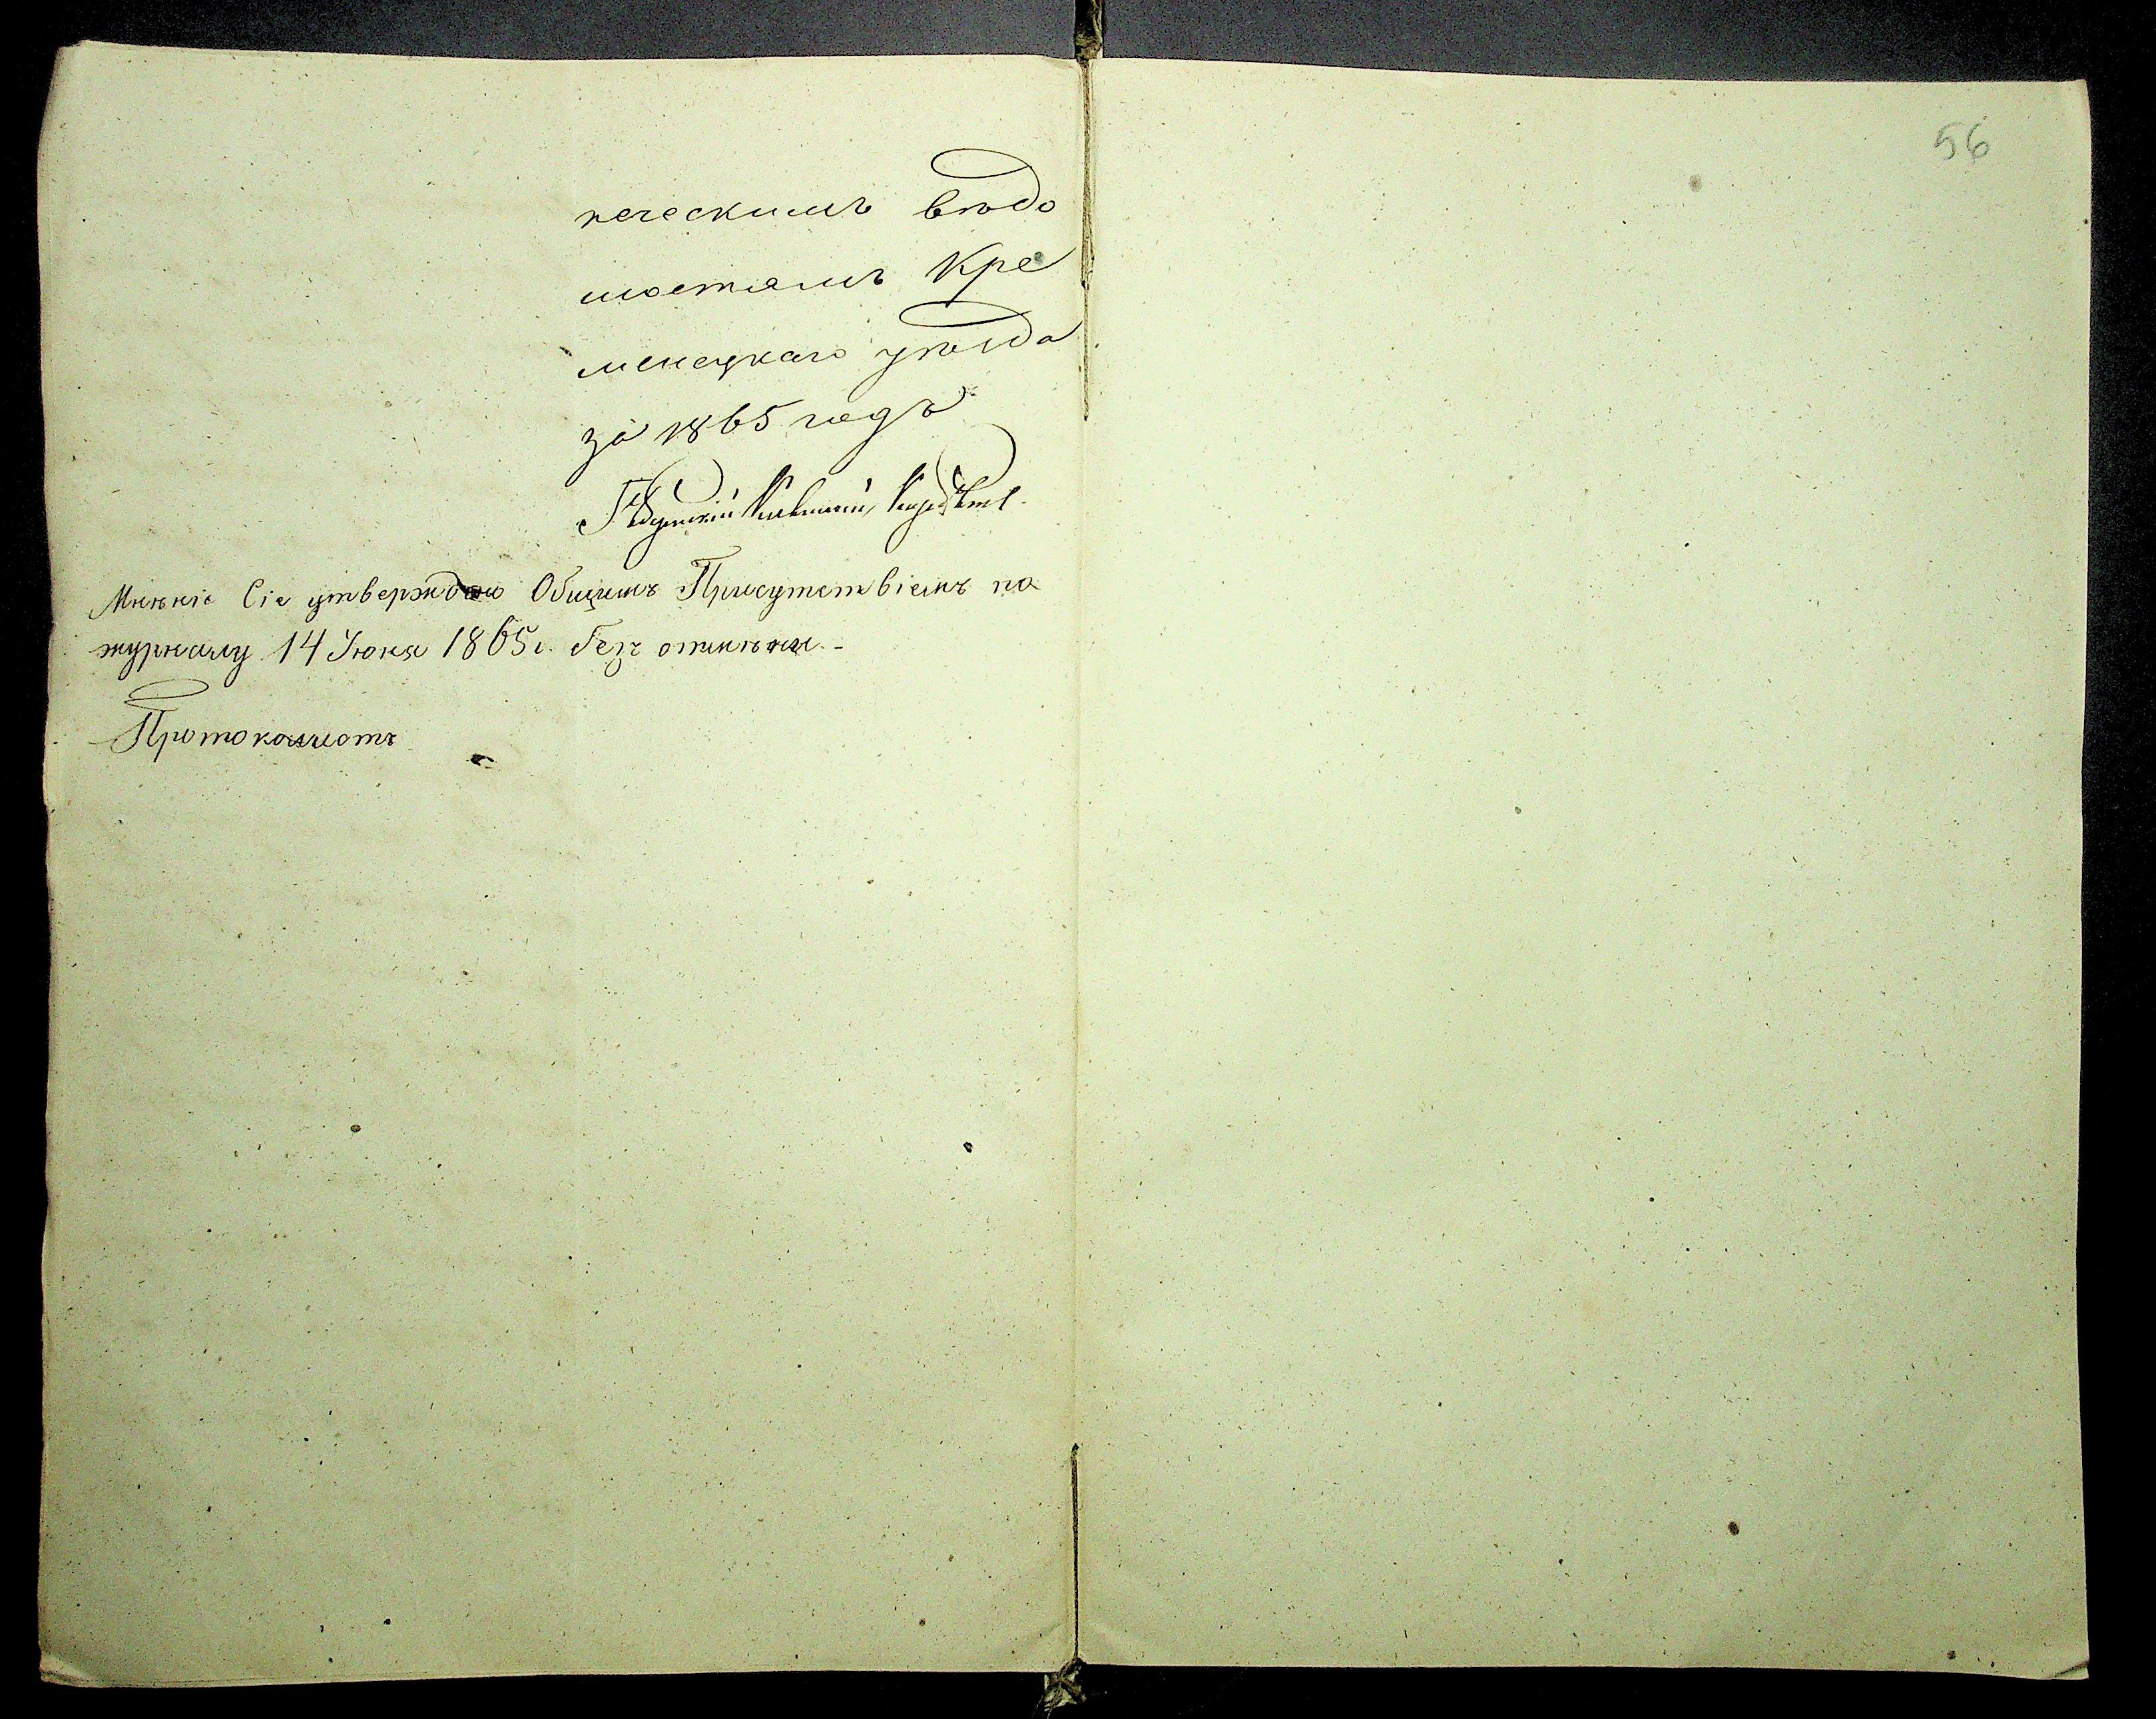 ческимъ вѣдо
мостямъ Кре
менецкаго уѣзда
за 1865 годъ
Мнѣніе Сіе утверждено Общимъ Присутствіемъ по
журналу 14 Іюня 1865 г. безъ отмѣны.-
Протоколистъ
56